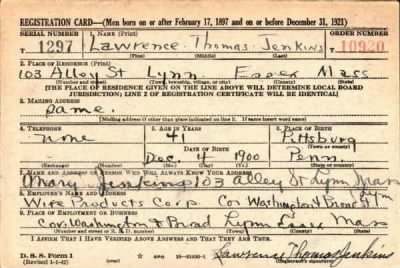 REGISTRATION CARD—(Men born on or after February 17, 1897 and on or before December 31, 1921)
SERIAL NUMBER 1. NAME (Print) ORDER NUMBER
T 1297 Lawrence Thomas Jenkins 10930
2. PLACE OF RESIDENCE (Print)
103 Alley St Lynn Essex Mass
(Number and street) (Town, township, village, or city) (County) (State)
[THE PLACE OF RESIDENCE GIVEN ON THE LINE ABOVE WILL DETERMINE LOCAL BOARD
JURISDICTION; LINE 2 OF REGISTRATION CERTIFICATE WILL BE IDENTICAL]
3. MAILING ADDRESS
same.
[Mailing address if other than place indicated on line 2. If same insert word same]
4. TELEPHONE 5. AGE IN YEARS 6. PLACE OF BIRTH
none 41 Pittsburg
DATE OF BIRTH (Town or county)
Dec. 4 1900 Penn
(Exchange) (Number) (Mo.) (Day) (Yr.) (State or country)
7. NAME AND ADDRESS OF PERSON WHO WILL ALWAYS KNOW YOUR ADDRESS
Mary Jenkins 103 Alley St Lynn Mass
8. EMPLOYER'S NAME AND ADDRESS
Wire Products Corp Cor Washington & Broad St Lynn
9. PLACE OF EMPLOYMENT OR BUSINESS
Cor. Washington & Broad Lynn Mass
(Number and street or R. F. D. number) (Town) (County) (State)
I AFFIRM THAT I HAVE VERIFIED ABOVE ANSWERS AND THAT THEY ARE TRUE.
D. S. S. Form 1
(Revised 1-1-42) GPO 16—21630-1 Lawrence Thomas Jenkins
(Registrant's signature)